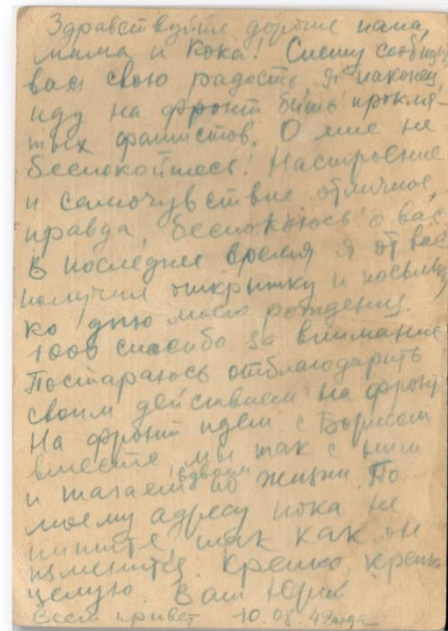 Здравствуйте дорогие папа,
мама и Кока! Спешу сообщить
вам свою радость, я наконец
иду на фронт бить прокля-
тых фашистов. О мне не
беспокойтесь! Настроение
и самочувствие отличное,
правда, беспокоюсь о вас
В последнее время я от вас
получил открытку и посылку
ко дню моего рождения.
1000 спасибо за внимание
Постараюсь отблагодарить
своим действием на фронте
На фронт идем с Борисом
вместе мы так с ним
и шагаем вдвоем по жизни. По
моему адресу пока не
пишите, так как он
изменится. Крепко, крепко
целую. Ваш Юрий
Всем привет 10.08.42года